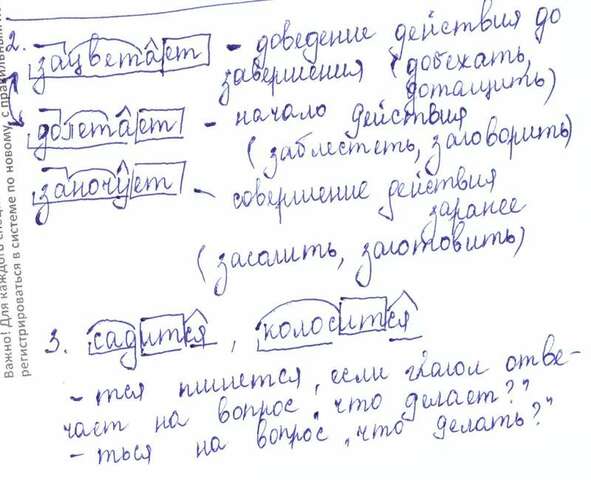 2. зацветает - доведение действия до
завершения (добежать,
дотащить)
долетает - начало действия
(заблестеть, заговорить)
заночует - совершение действия
заранее
(засолить, заготовить)
3. садится, колосится
- тся пишется, если глагол отве-
чает на вопрос „что делает?"
- ться на вопрос „что делать?"
Важно! Для каждого
регистрироваться в системе по новому, с правильным